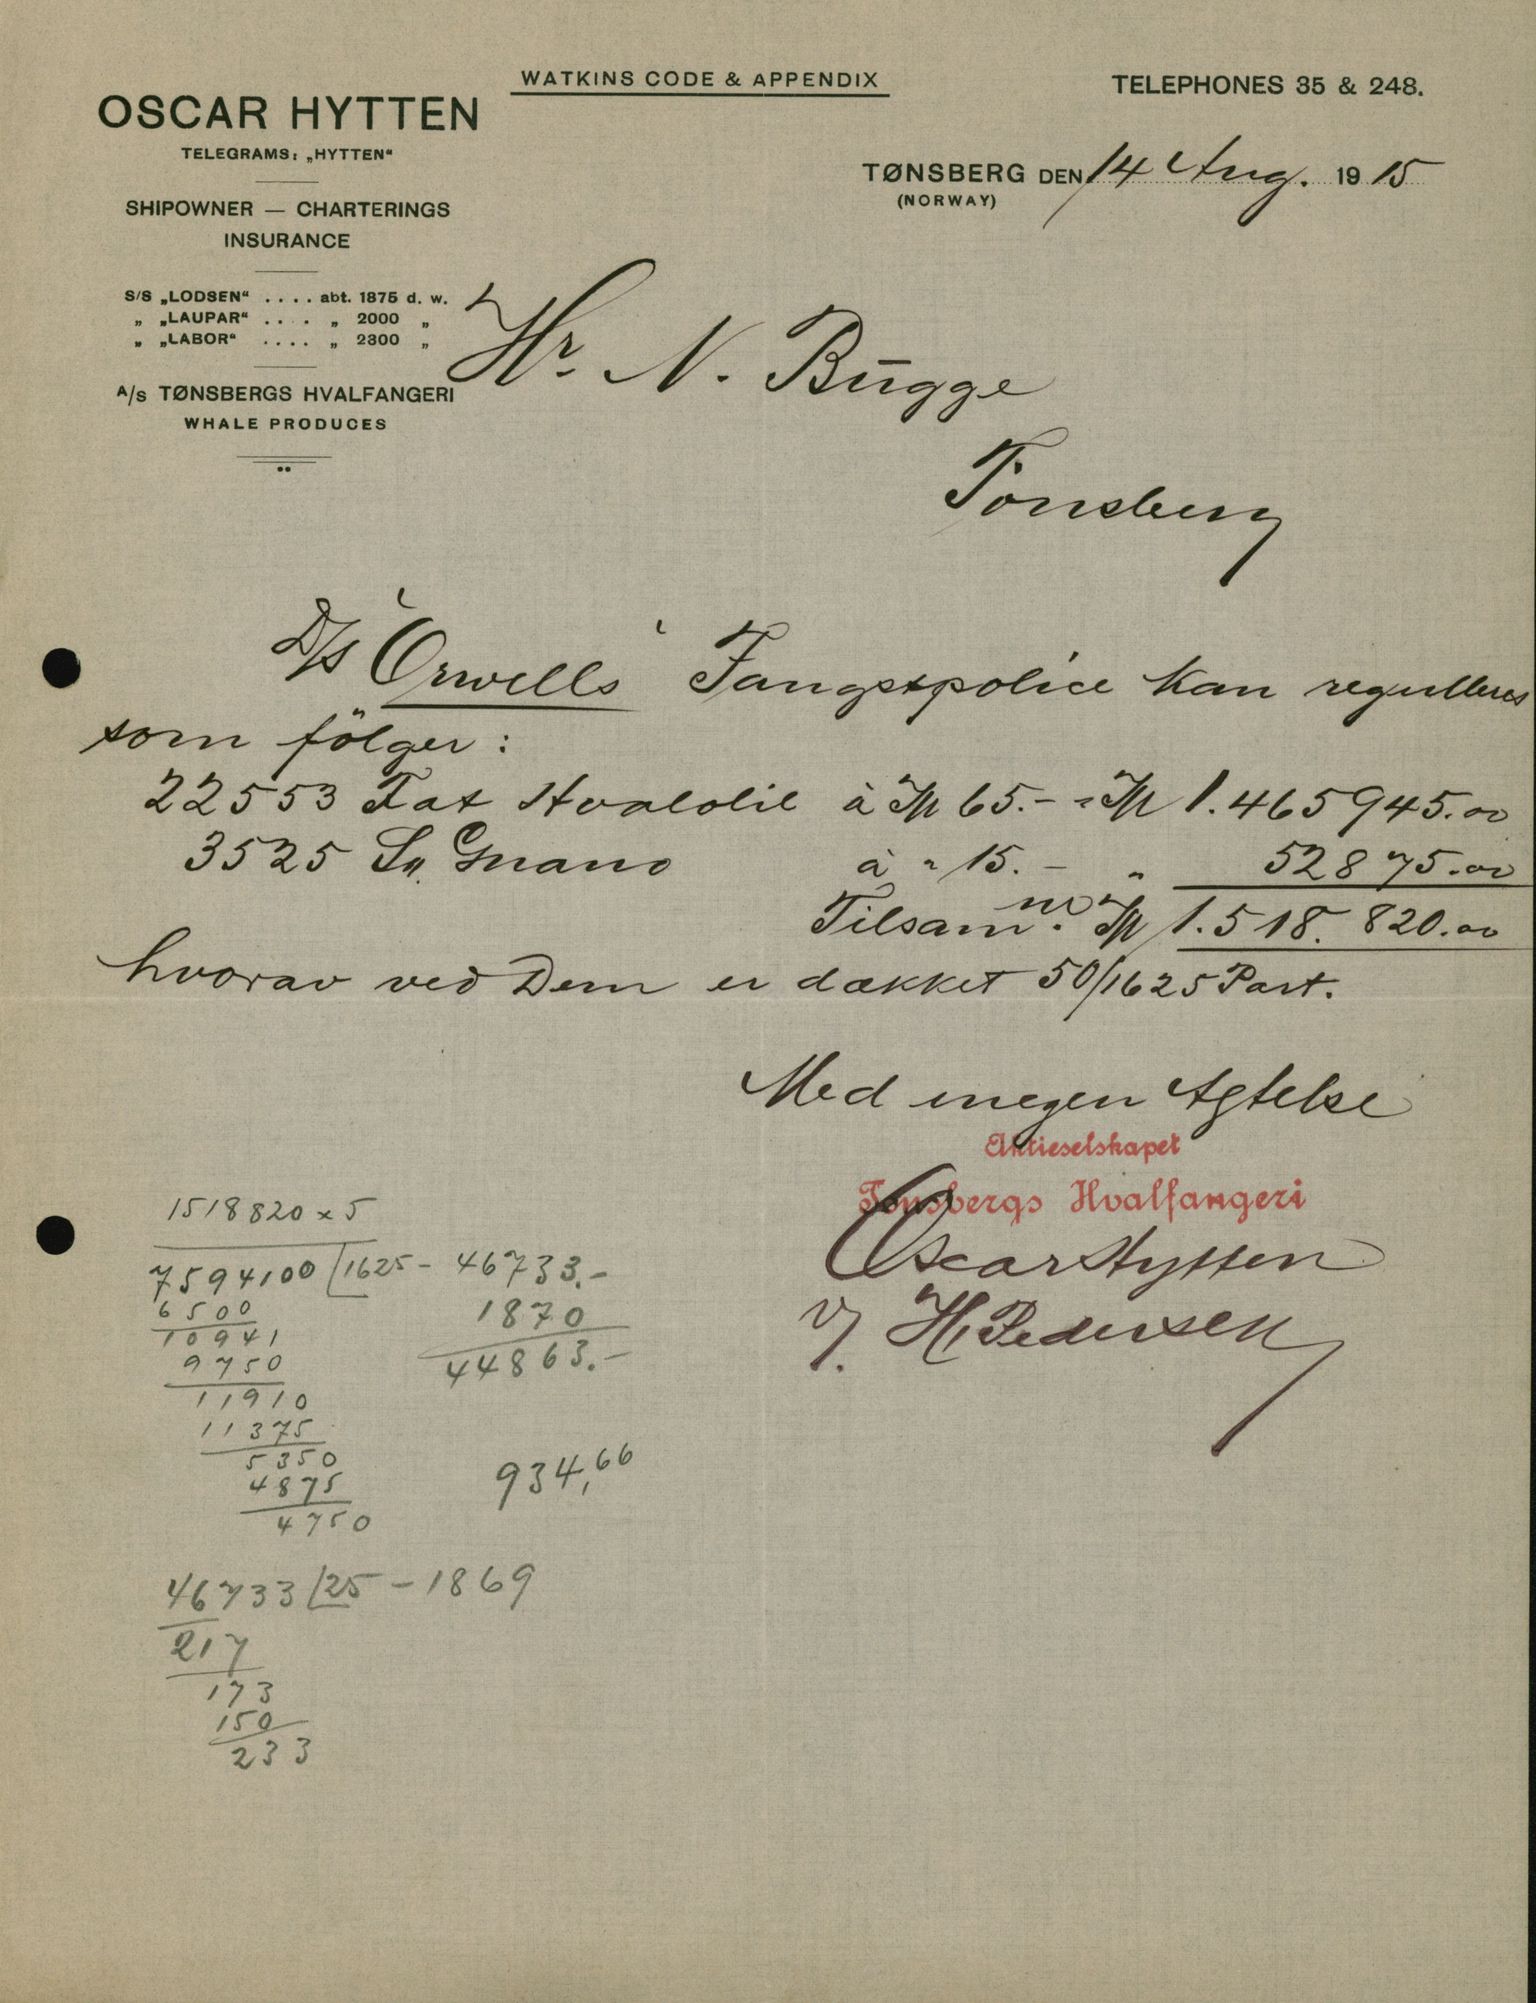 WATKINS CODE & APPENDIX
TELEPHONES 35 & 248.
OSCAR HYTTEN
TELEGRAMS: „HYTTEN“
SHIPOWNER — CHARTERINGS
INSURANCE
S/S „LODSEN“ .... abt. 1875 d. w.
„ „LAUPAR“ .... „ 2000 „
„ „LABOR“ .... „ 2300 „
A/S TØNSBERGS HVALFANGERI
WHALE PRODUCES
TØNSBERG DEN 14 Aug. 1915
(NORWAY)
Hr. N. Bugge
Tönsberg
D/S "Orwells" Fangstpolice kan regulleres
som fölger:
22553 Fat Hvalolie à Kr 65.- = Kr 1.465945.00
3525 Sk. Guano à " 15.- " 52875.00
Tilsamm. Kr 1.518.820.00
hvorav ved Dem er dækket 50/1625 Part.
Med megen Agtelse
Aktieselskapet
Tønsbergs Hvalfangeri
Oscar Hytten
v/ H. Pedersen
1518820 x 5
7594100 | 1625 - 46733.-
6500
10941
9750
11910
11375
5350
4875
4750
1870
44863.-
934,66
46733 | 25 - 1869
217
173
150
233